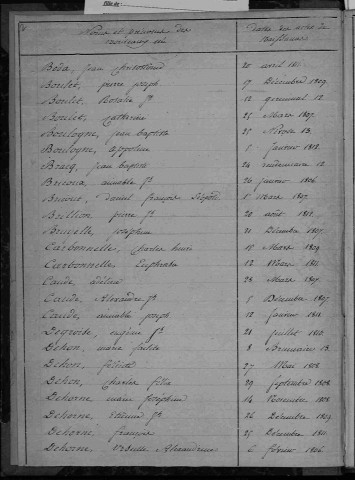 Noms et prénoms des nouveaux nés
Dates des actes de naissance
Beda, jean 20 avril 1811
Boulet, pierre joseph 17 Décembre 1809
Boulet, Rosalie jh 12 germinal 12
Boulet, Catherine 25 Mars 1807
Boulogne, jean baptiste 25 Nivose 13
Boulogne, appoline 1 janvier 1812
Bracq, jean baptiste 24 vendemiaire 12
aimable jh 26 janvier 1806
daniel françois 1er Mars 1807
Brillion, pierre jh 20 août 1811
Bruvelle, josephine 21 Décembre 1807
Carbonnelle, charles henri 15 Mars 1809
Carbonnelle, Euphrosine 12 Mars 1811
Caudé, adelaïde 28 Mars 1807
Caudé, Alexandre jh 1 Décembre 1807
Caudé, aimable joseph 12 janvier 1811
jh 21 juillet 1810
Dehon, marie 8 Brumaire 13
Dehon, félicité 27 Mai 1808
Dehon, charles félix 29 Septembre 1808
Dehorne, marie joséphine 14 Novembre 1808
Dehorne, Etienne jh 26 Décembre 1809
Dehorne, françois 25 Décembre 1811
Dehorne, Alexandrine 6 février 1806